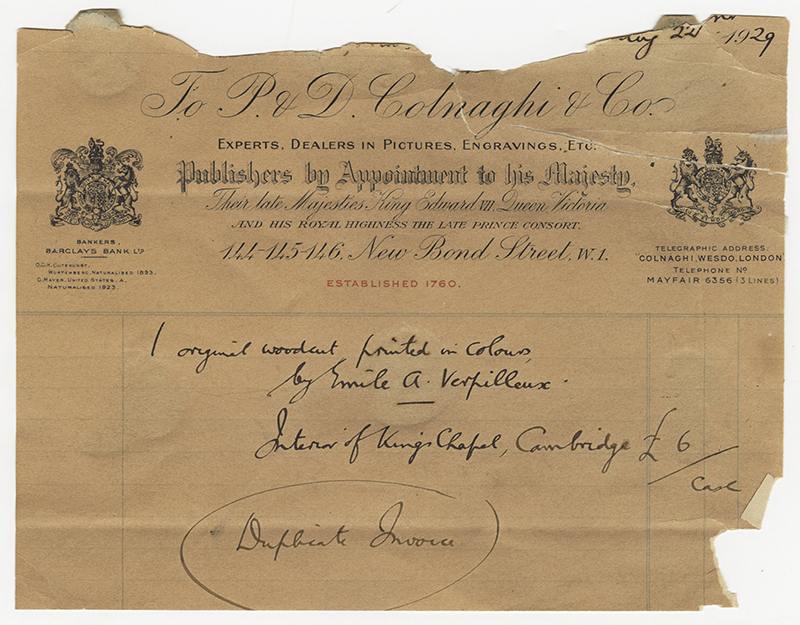 Aug 22nd 1929
To P. & D. Colnaghi & Co.
EXPERTS, DEALERS IN PICTURES, ENGRAVINGS, ETC.
Publishers by Appointment to his Majesty,
Their late Majesties, King Edward VII, Queen Victoria
AND HIS ROYAL HIGHNESS THE LATE PRINCE CONSORT.
144-145-146, New Bond Street, W.1.
ESTABLISHED 1760.
BANKERS,
BARCLAYS BANK, LTD
O.C.H. GUTEKUNST,
WURTEMBERG, NATURALISED 1893.
G. MAYER, UNITED STATES, A.
NATURALISED 1923.
TELEGRAPHIC ADDRESS:
COLNAGHI, WESDO, LONDON
TELEPHONE NO
MAYFAIR 6356 (3 LINES)
1 original woodcut printed in colours,
by Emile A. Verpilleux.
Interior of Kings Chapel, Cambridge £ 6
Cash
Duplicate Invoice